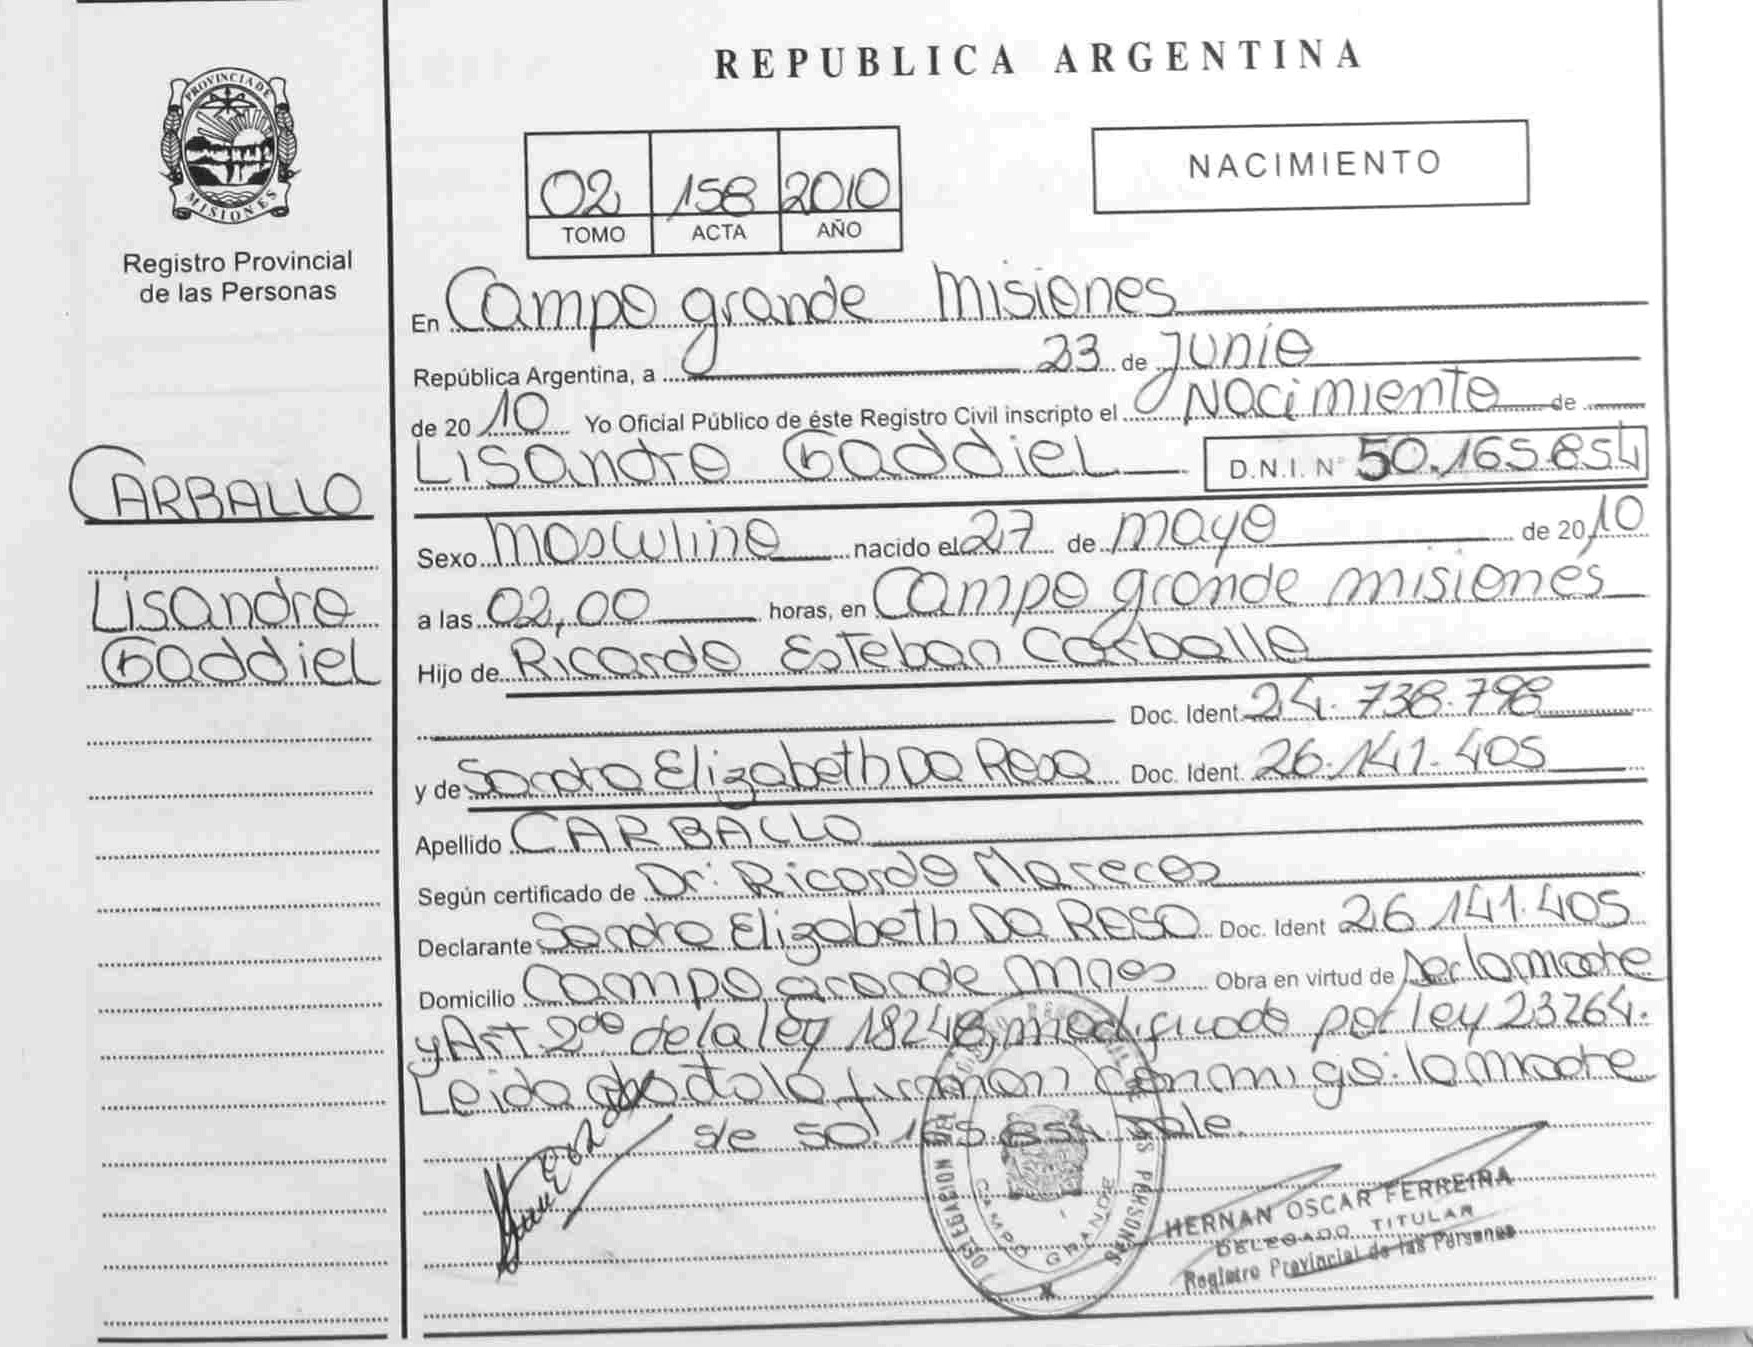 PROVINCIA DE
MISIONES
Registro Provincial
de las Personas
CARBALLO
Lisandro
Gaddiel
REPUBLICA ARGENTINA
NACIMIENTO
02 158 2010
TOMO ACTA AÑO
En Campo grande Misiones
República Argentina, a 23 de Junio
de 2010 Yo Oficial Público de éste Registro Civil inscripto el Nacimiento de
Lisandro Gaddiel D.N.I. N° 50.165.854
Sexo Masculino nacido el 27 de mayo de 2010
a las 02,00 horas, en Campo grande misiones
Hijo de Ricardo Esteban Carballo
Doc. Ident. 24.738.798
y de Sandra Elizabeth Da Rosa Doc. Ident. 26.141.405
Apellido CARBALLO
Según certificado de Dr. Ricardo Mareco
Declarante Sandra Elizabeth Da Rosa Doc. Ident 26.141.405
Domicilio Campo grande Mnes Obra en virtud de Decla madre
y Art 2do de la ley 18248, modificado por ley 23264.
Leida el acta la firman conmigo: la madre
s/e 50.165.854 vale.
DELEGACION DEL PERSONAS
CAMPO GRANDE
HERNAN OSCAR FERREIRA
DELEGADO TITULAR
Registro Provincial de las Personas